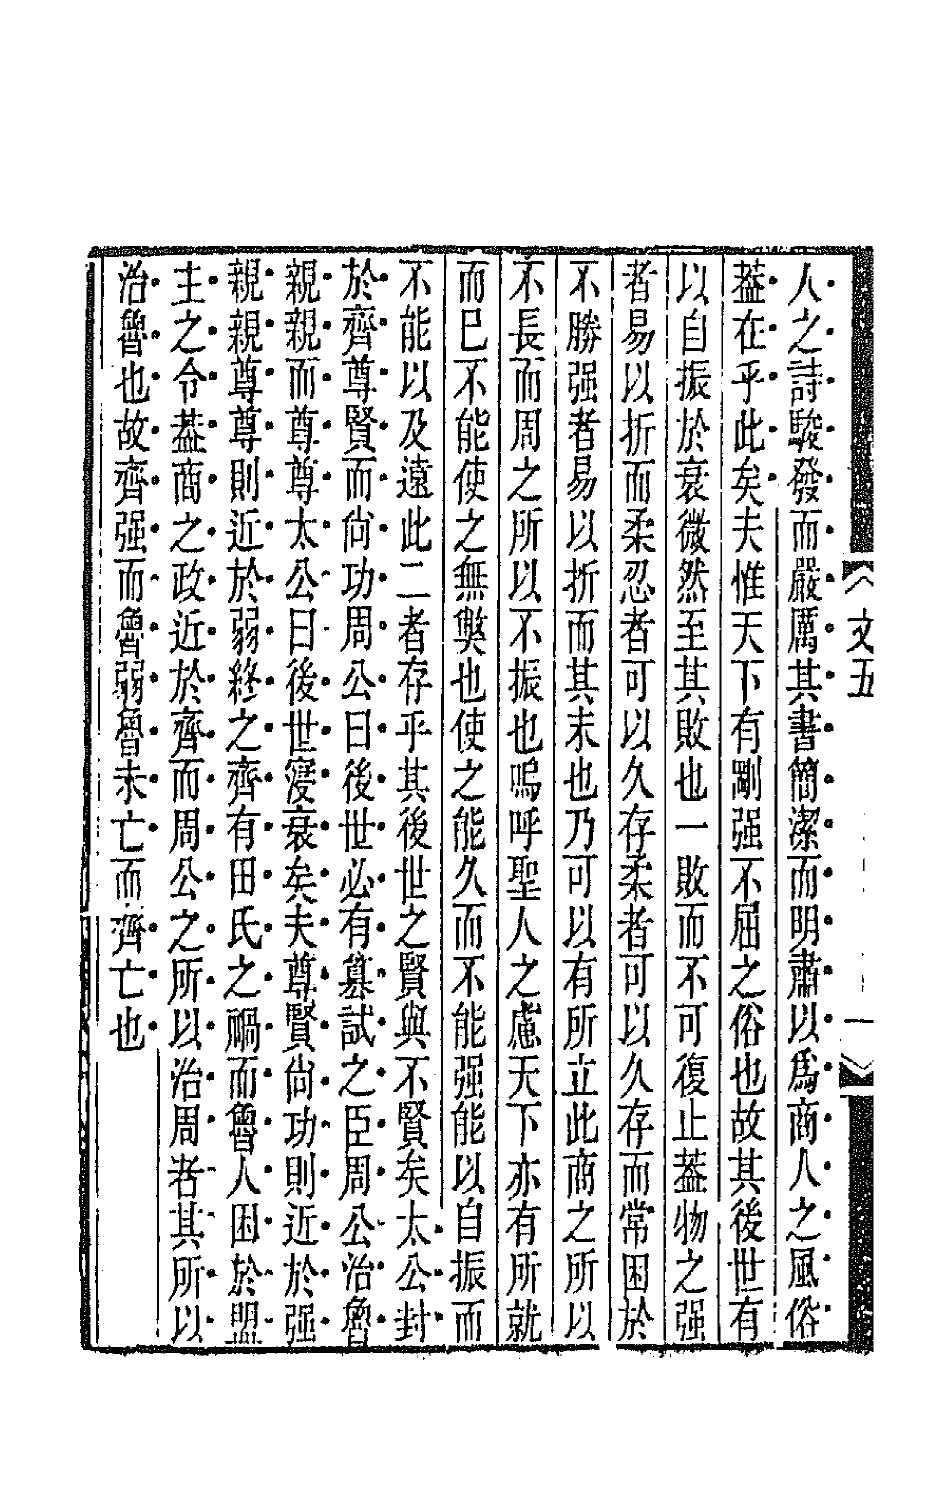 文五
一
人之詩駿發而嚴厲其書簡潔而明肅以爲商人之風俗
葢在乎此矣夫惟天下有剛强不屈之俗也故其後世有
以自振於衰微然至其敗也一敗而不可復止葢物之强
者易以折而柔忍者可以久存柔者可以久存而常困於
不勝强者易以折而其末也乃可以有所立此商之所以
不長而周之所以不振也嗚呼聖人之慮天下亦有所就
而已不能使之無獘也使之能久而不能强能以自振而
不能以及遠此二者存乎其後世之賢與不賢矣太公封
於齊尊賢而尙功周公曰後世必有簒試之臣周公治魯
親親而尊尊太公曰後世寖衰矣夫尊賢尙功則近於强
親親尊尊則近於弱終之齊有田氏之禍而魯人困於盟
主之令葢商之政近於齊而周公之所以治周者其所以
治魯也故齊强而魯弱魯未亡而齊亡也